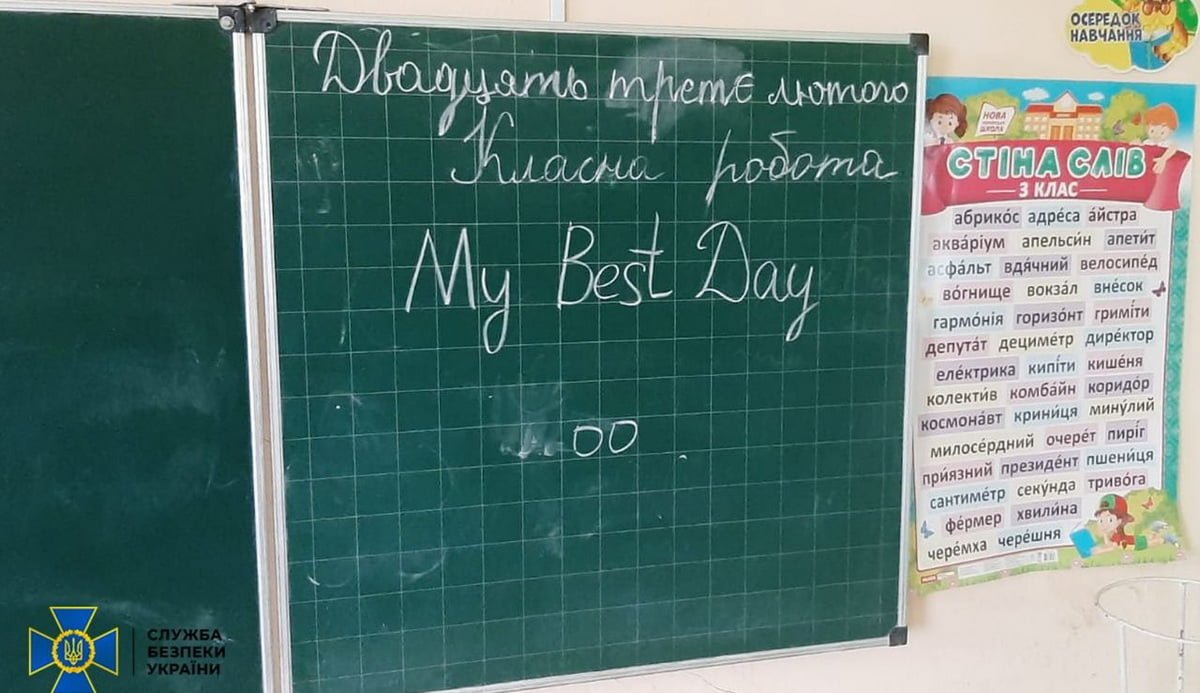 Двадцять третє лютого
Класна робота
My Best Day
00
ОСЕРЕДОК
НАВЧАННЯ
НОВА
УКРАЇНСЬКА
ШКОЛА
СТІНА СЛІВ
3 КЛАС
абрико́с адре́са а́йстра
аква́ріум апельси́н апети́т
асфа́льт вдя́чний велосипе́д
во́гнище вокза́л вне́сок
гармо́нія горизо́нт гримі́ти
депута́т дециме́тр дире́ктор
еле́ктрика кипі́ти кише́ня
колекти́в комба́йн коридо́р
космона́вт крини́ця мину́лий
милосе́рдний очере́т пирі́г
при́язний президе́нт пшени́ця
сантиме́тр секу́нда триво́га
фе́рмер хвили́на
чере́мха чере́шня
СЛУЖБА
БЕЗПЕКИ
УКРАЇНИ